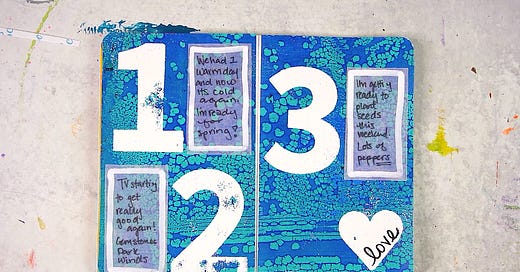 1
We had 1
warm day
and now
its cold
again.
Im ready
for
spring!
2
TV starting
to get
really
good
again!
Gemstones
Dark
Winds
3
Im getting
ready to
plant
seeds
this
weekend.
Lots of
peppers
love